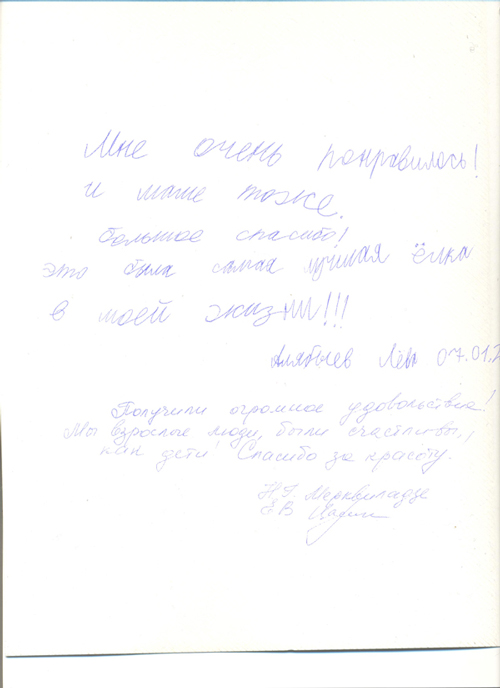 Мне очень понравилось!
и маме тоже.
большое спасибо!
это была самая лучшая ёлка
в моей жизни!!!
Алябьев Лев 07.01.2
Получили огромное удовольствие!
Мы взрослые люди, были счастливы,
как дети! Спасибо за красоту.
Н.Г. Мерквиладзе
Е В